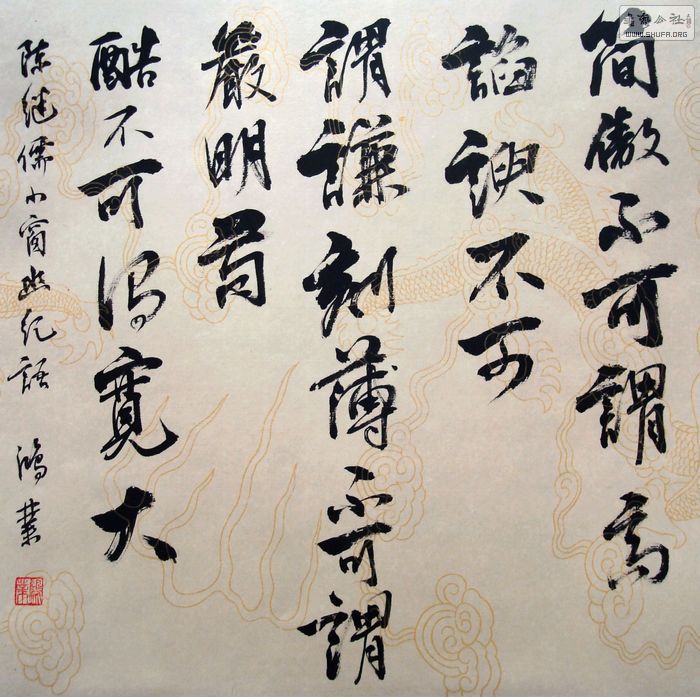 簡傲不可謂高
諂諛不可
謂謙刻薄不可謂
嚴明苟
酷不可寬大
陳繼儒小窗幽紀語 鴻業
公社
WWW.SHUFA.ORG